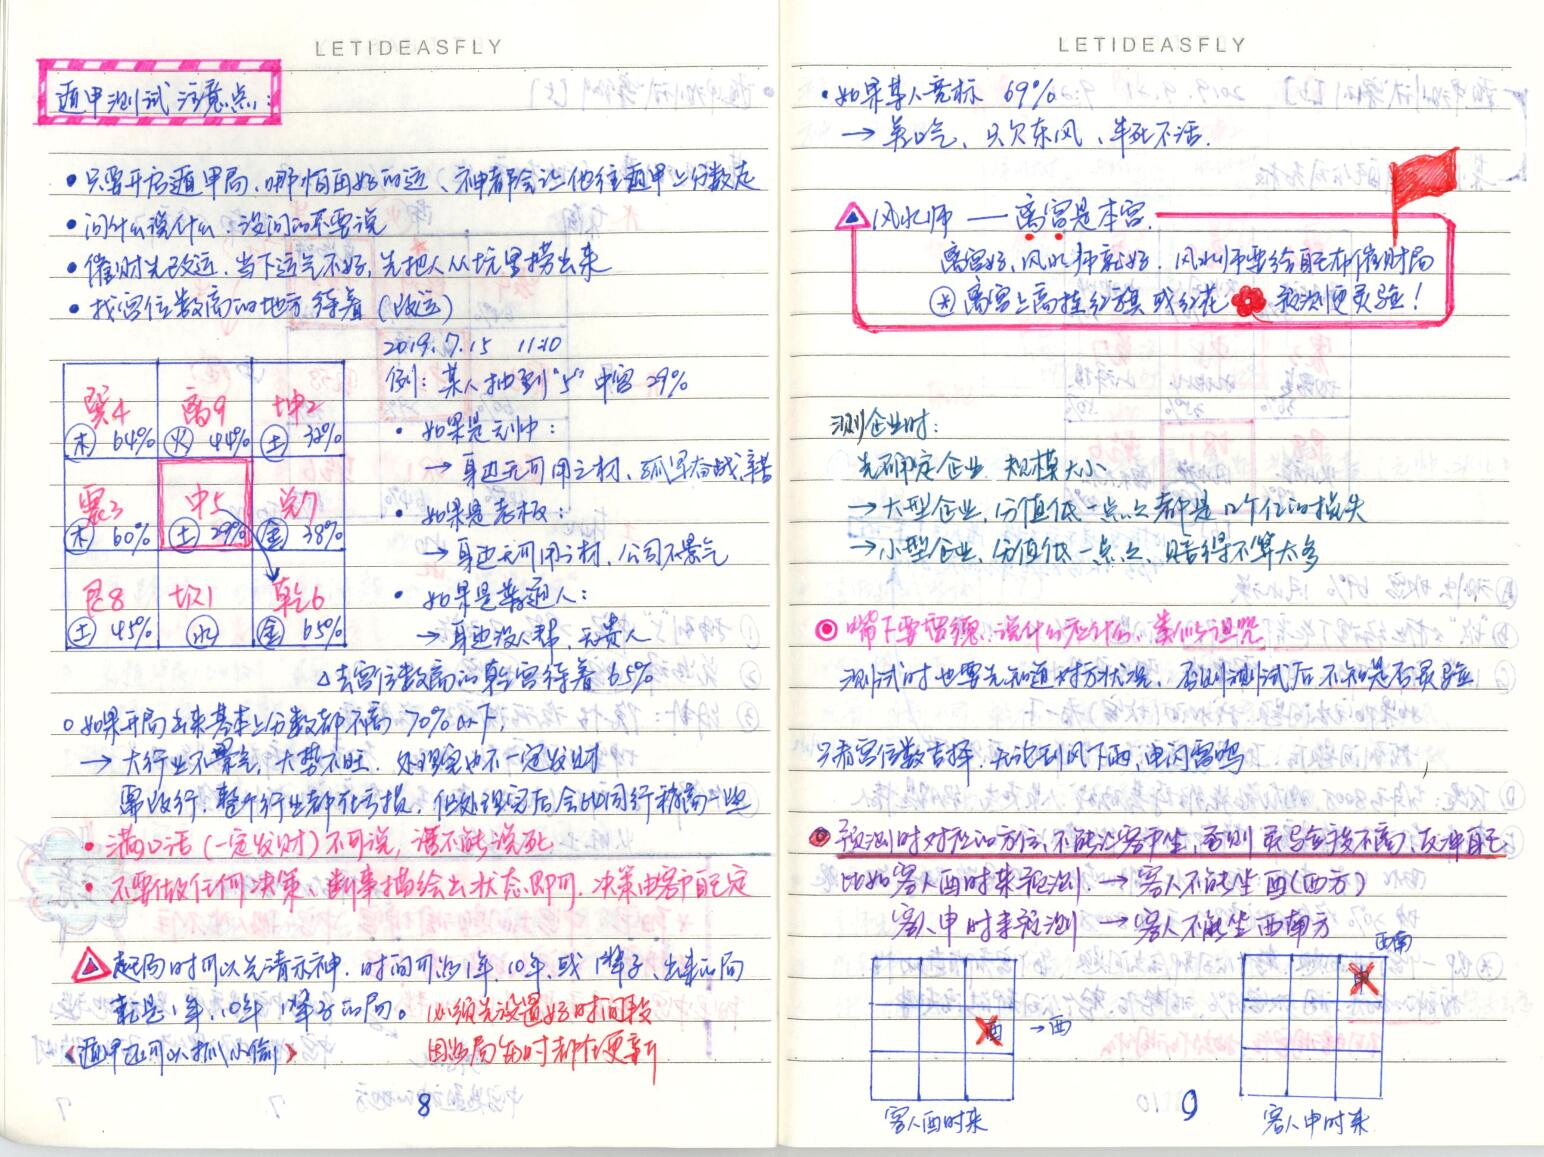 LETIDEASFLY
遁甲测试注意点:
• 只要开启遁甲局、哪怕再好的运、神都会让他往遁甲上分数走
• 问什么说什么、没问的不要说
• 催财先改运、当下运气不好,先把人从坑里捞出来
• 找宫位数高的地方待着 (收运)
2019.7.15 11:10
例: 某人抽到"5" 中宫 29%
巽4 离9 坤2
木 64% 火 44% 土 32%
震3 中5 兑7
木 60% 土 29% 金 38%
艮8 坎1 乾6
土 45% 水 金 65%
• 如果是
→ 身边无可用之材、孤军奋战,辛苦
• 如果是老板:
→ 身边无可用之材、公司不景气
• 如果是普通人:
→ 身边没人帮、无贵人
△去宫位数高的乾宫待着 65%
○ 如果开局出来基本上分数都不高 70%以下,
→ 大行业不景气, 大势不旺. 处理完也不一定发财
需改行. 整个行业都在亏损, 但处理完后会比同行稍高一些
• 满口话 (一定发财) 不可说, 话不能说死
• 不要做任何决策、断事描绘出状态即可、决策由客户自定
△ 起局时可以先请示神. 时间可以1年、10年、或1辈子、出来的局
就是1年、10年、1辈子的局。 必须先设置好时间段
《遁甲还可以抓小偷》 因为局每时都在更新
8
LETIDEASFLY
• 如果某人竞标 69%
→ 差口气、只欠东风、半死不活.
△ 风水师 —— 离宫是本宫.
离宫好、风水师就好. 风水师要给自己布催财局
离宫上高挂红旗或红花 预测更灵验!
测企业时:
先确定企业 规模大小
→ 大型企业, 分值低一点点都是几个亿的损失
→ 小型企业, 分值低一点点 赔得不算太多
◎ 嘴下要留德、说什么应什么、类似诅咒
测试时也要先知道对方状况、否则测试后不知是否灵验
只看宫位数吉择, 无论刮风下雨, 电闪雷鸣
预测时对应的方位, 不能让客户坐, 否则 灵验不高, 反冲自己
比如客人酉时来预测. → 客人不能坐 酉(西方)
客人申时来预测 → 客人不能坐西南方
西南
申
酉 → 西
客人酉时来
客人申时来
9